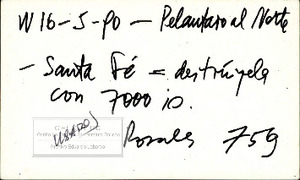 W16-5-PO — Pelantaro al Norte
— Santa Fé = destrúyela
con 7000 io.
Rosales 759